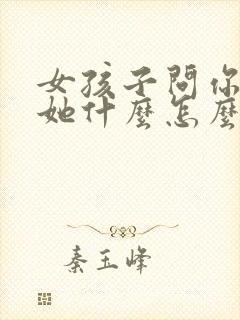 女孩子問你
她什麼怎麼
秦玉峰